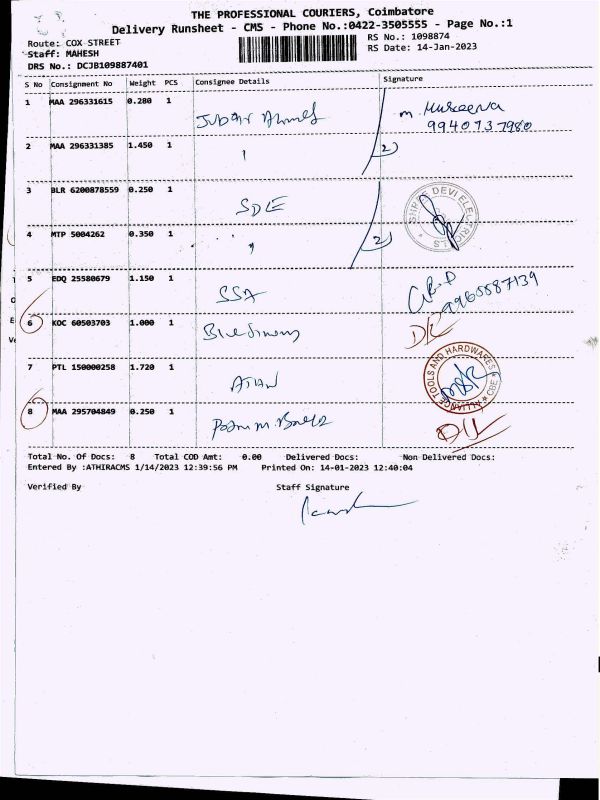 THE PROFESSIONAL COURIERS, Coimbatore
Delivery Runsheet - CMS - Phone No.:0422-3505555 - Page No.:1
Route: COX STREET
Staff: MAHESH
DRS No.: DCJB109887401
RS No.: 1098874
RS Date: 14-Jan-2023
S No Consignment No Weight PCS Consignee Details Signature
1 MAA 296331615 0.280 1 Jubair Ahmed
9940737980
2 MAA 296331385 1.450 1 2)
3 BLR 6200878559 0.250 1 SDLE
SHREE DEVI ELECTRICALS
4 MTP 5004262 0.350 1 " 2)
5 EDQ 25580679 1.150 1 SSA
9965587139
6 KOC 60503703 1.000 1 DL
7 PTL 150000258 1.720 1
ALLIANCE TOOLS AND HARDWARES CBE
8 MAA 295704849 0.250 1 DL
Total No. Of Docs: 8 Total COD Amt: 0.00 Delivered Docs: Non Delivered Docs:
Entered By :ATHIRACMS 1/14/2023 12:39:56 PM Printed On: 14-01-2023 12:40:04
Verified By Staff Signature